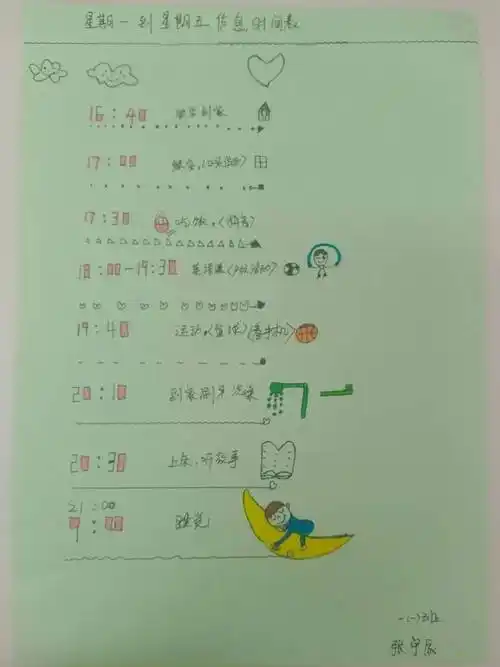 星期一到星期五作息时间表
16:40 放学到家
17:00 休息,(口头作业)
17:30 吃饭,(阅读)
18:00-19:30 英语课(户外活动)
19:40 运动(篮球)(看手机)
20:10 到家刷牙洗澡
20:30 上床,听故事
21:00
睡觉
一(一)班
张宇辰